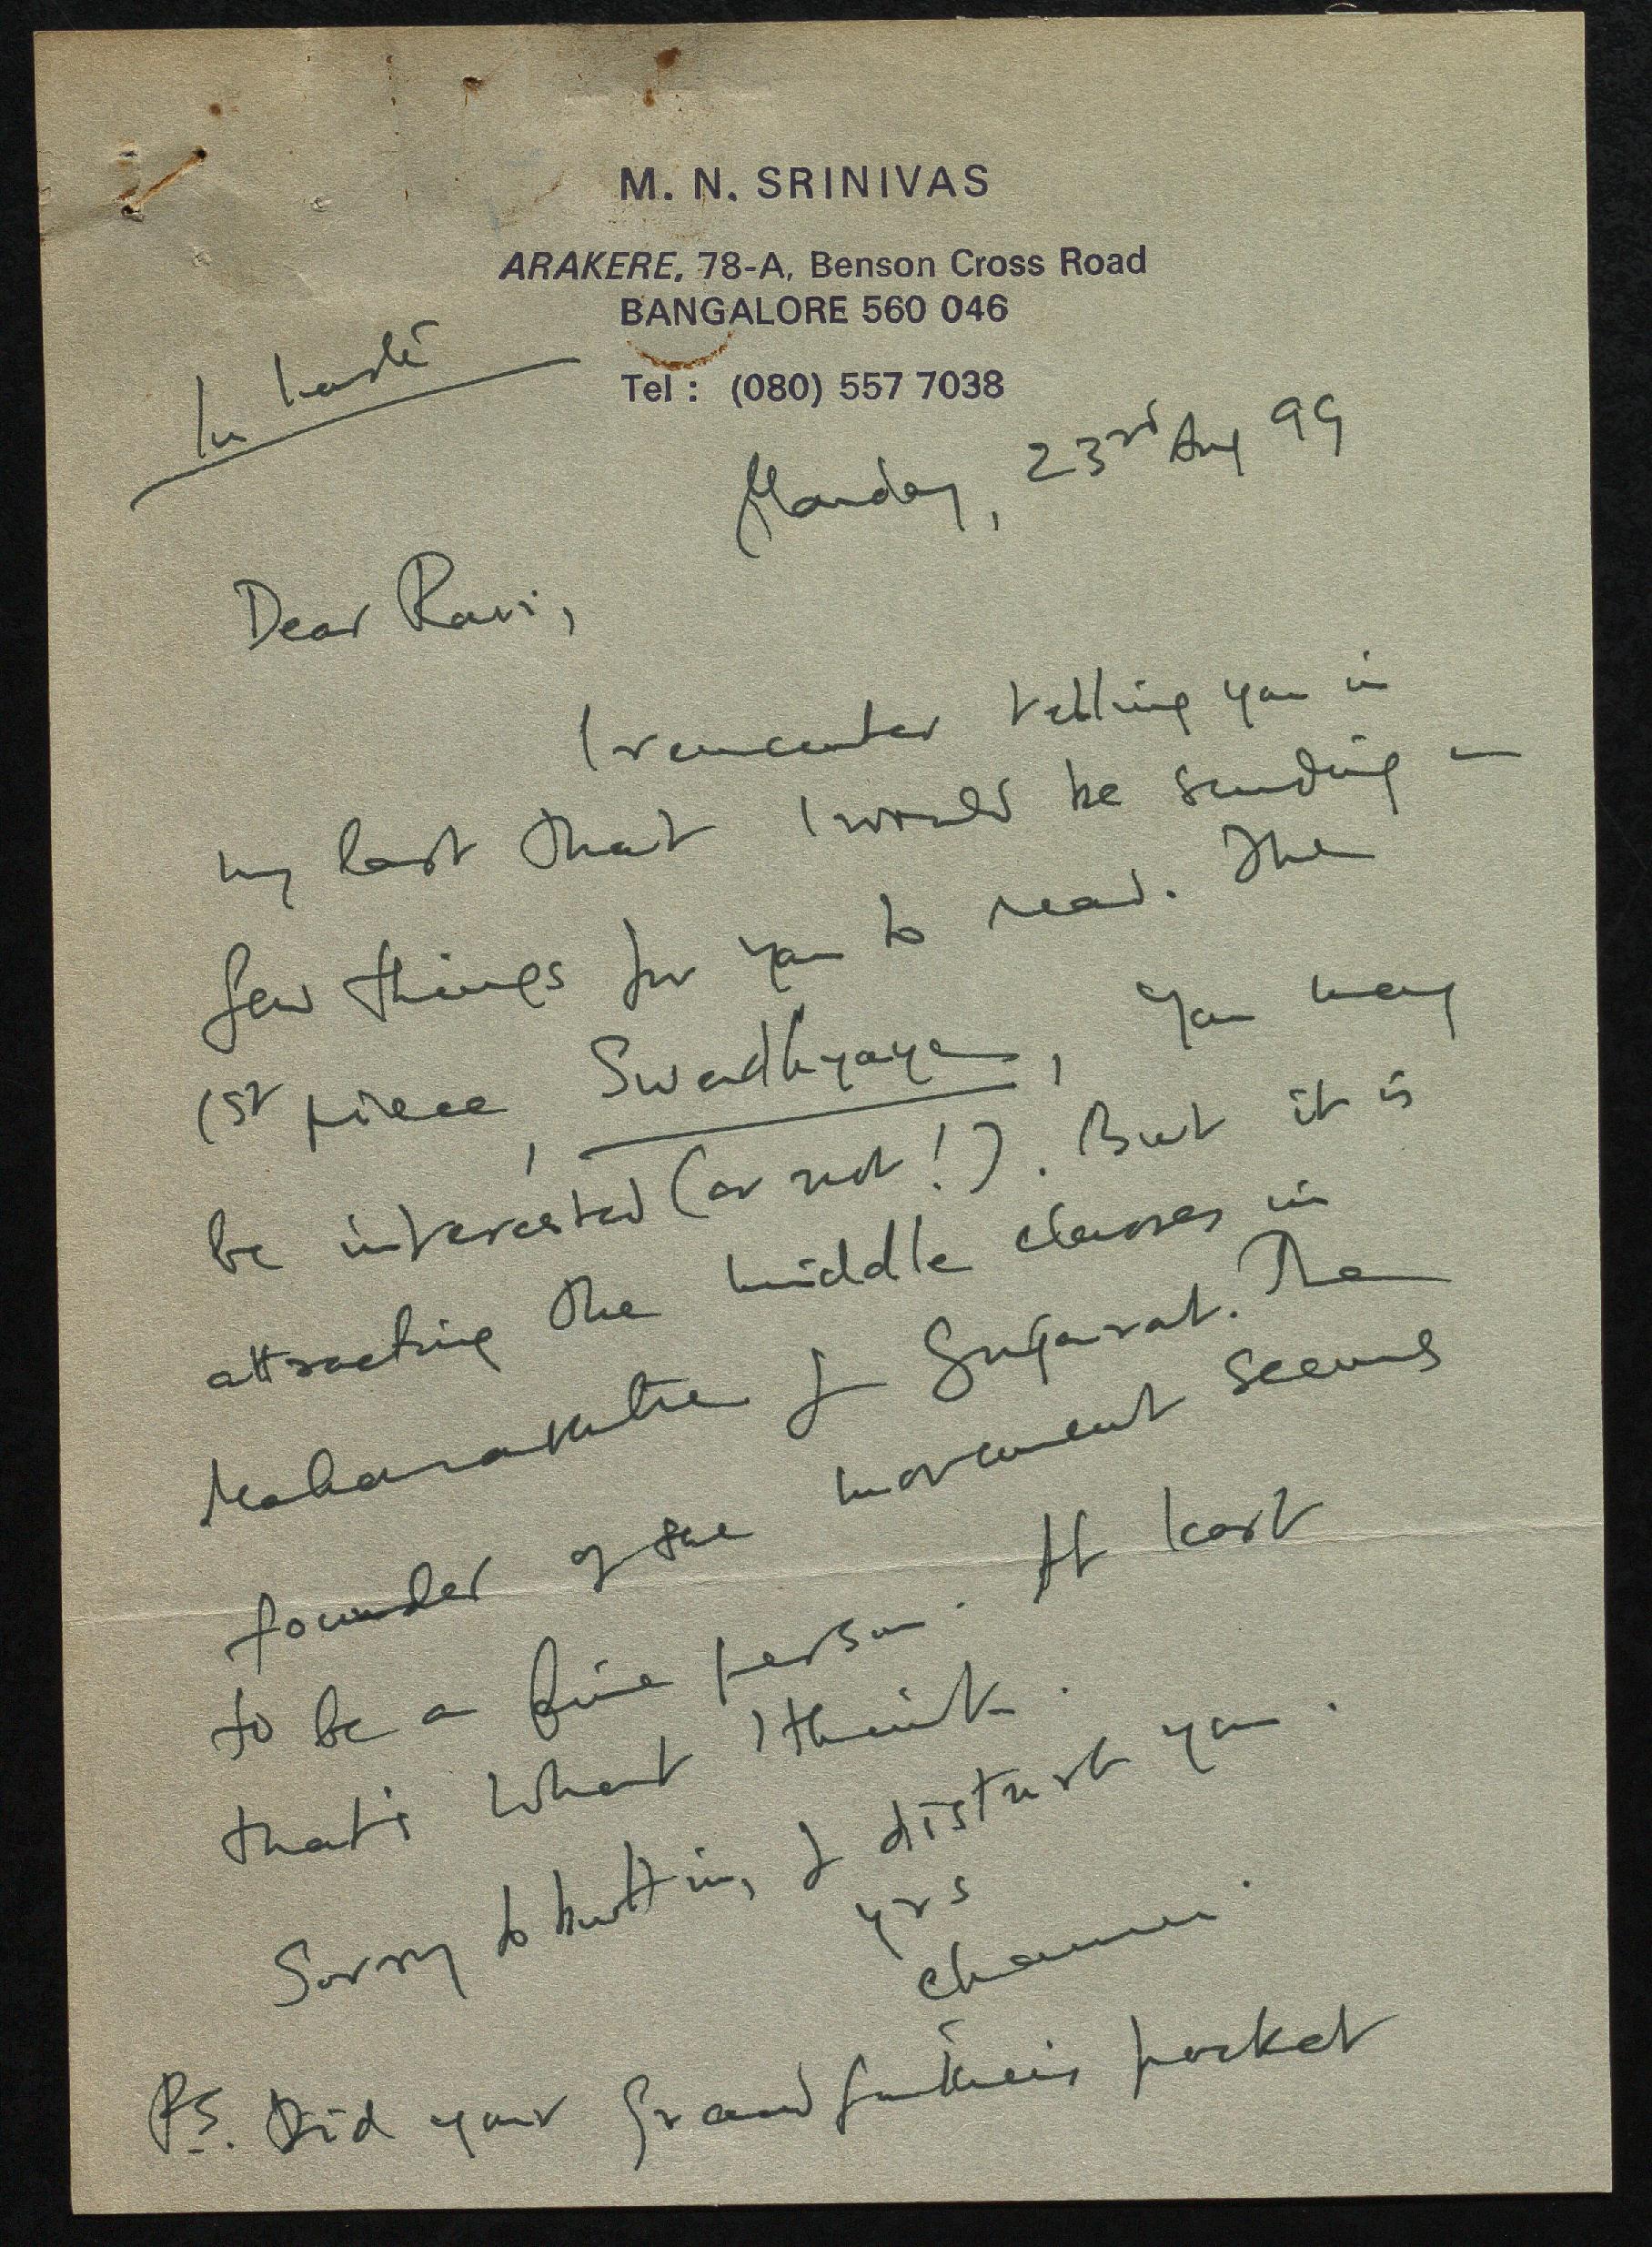 M. N. SRINIVAS
ARAKERE, 78-A, Benson Cross Road
BANGALORE 560 046
Tel : (080) 557 7038
In haste
Monday, 23rd Aug 99
Dear Ravi,
I remember telling you in
my last that I would be sending a
few things for you to read. The
1st piece, Swadhyaya, you may
be interested (or not!). But it is
attracting the middle classes in
Maharashtra & Gujarat. The
founder of the movement seems
to be a fine person. At least
that's what I think.
Sorry to butt in, & distrub you.
yrs
Chamu.
PS. Did your Grandfather's pocket